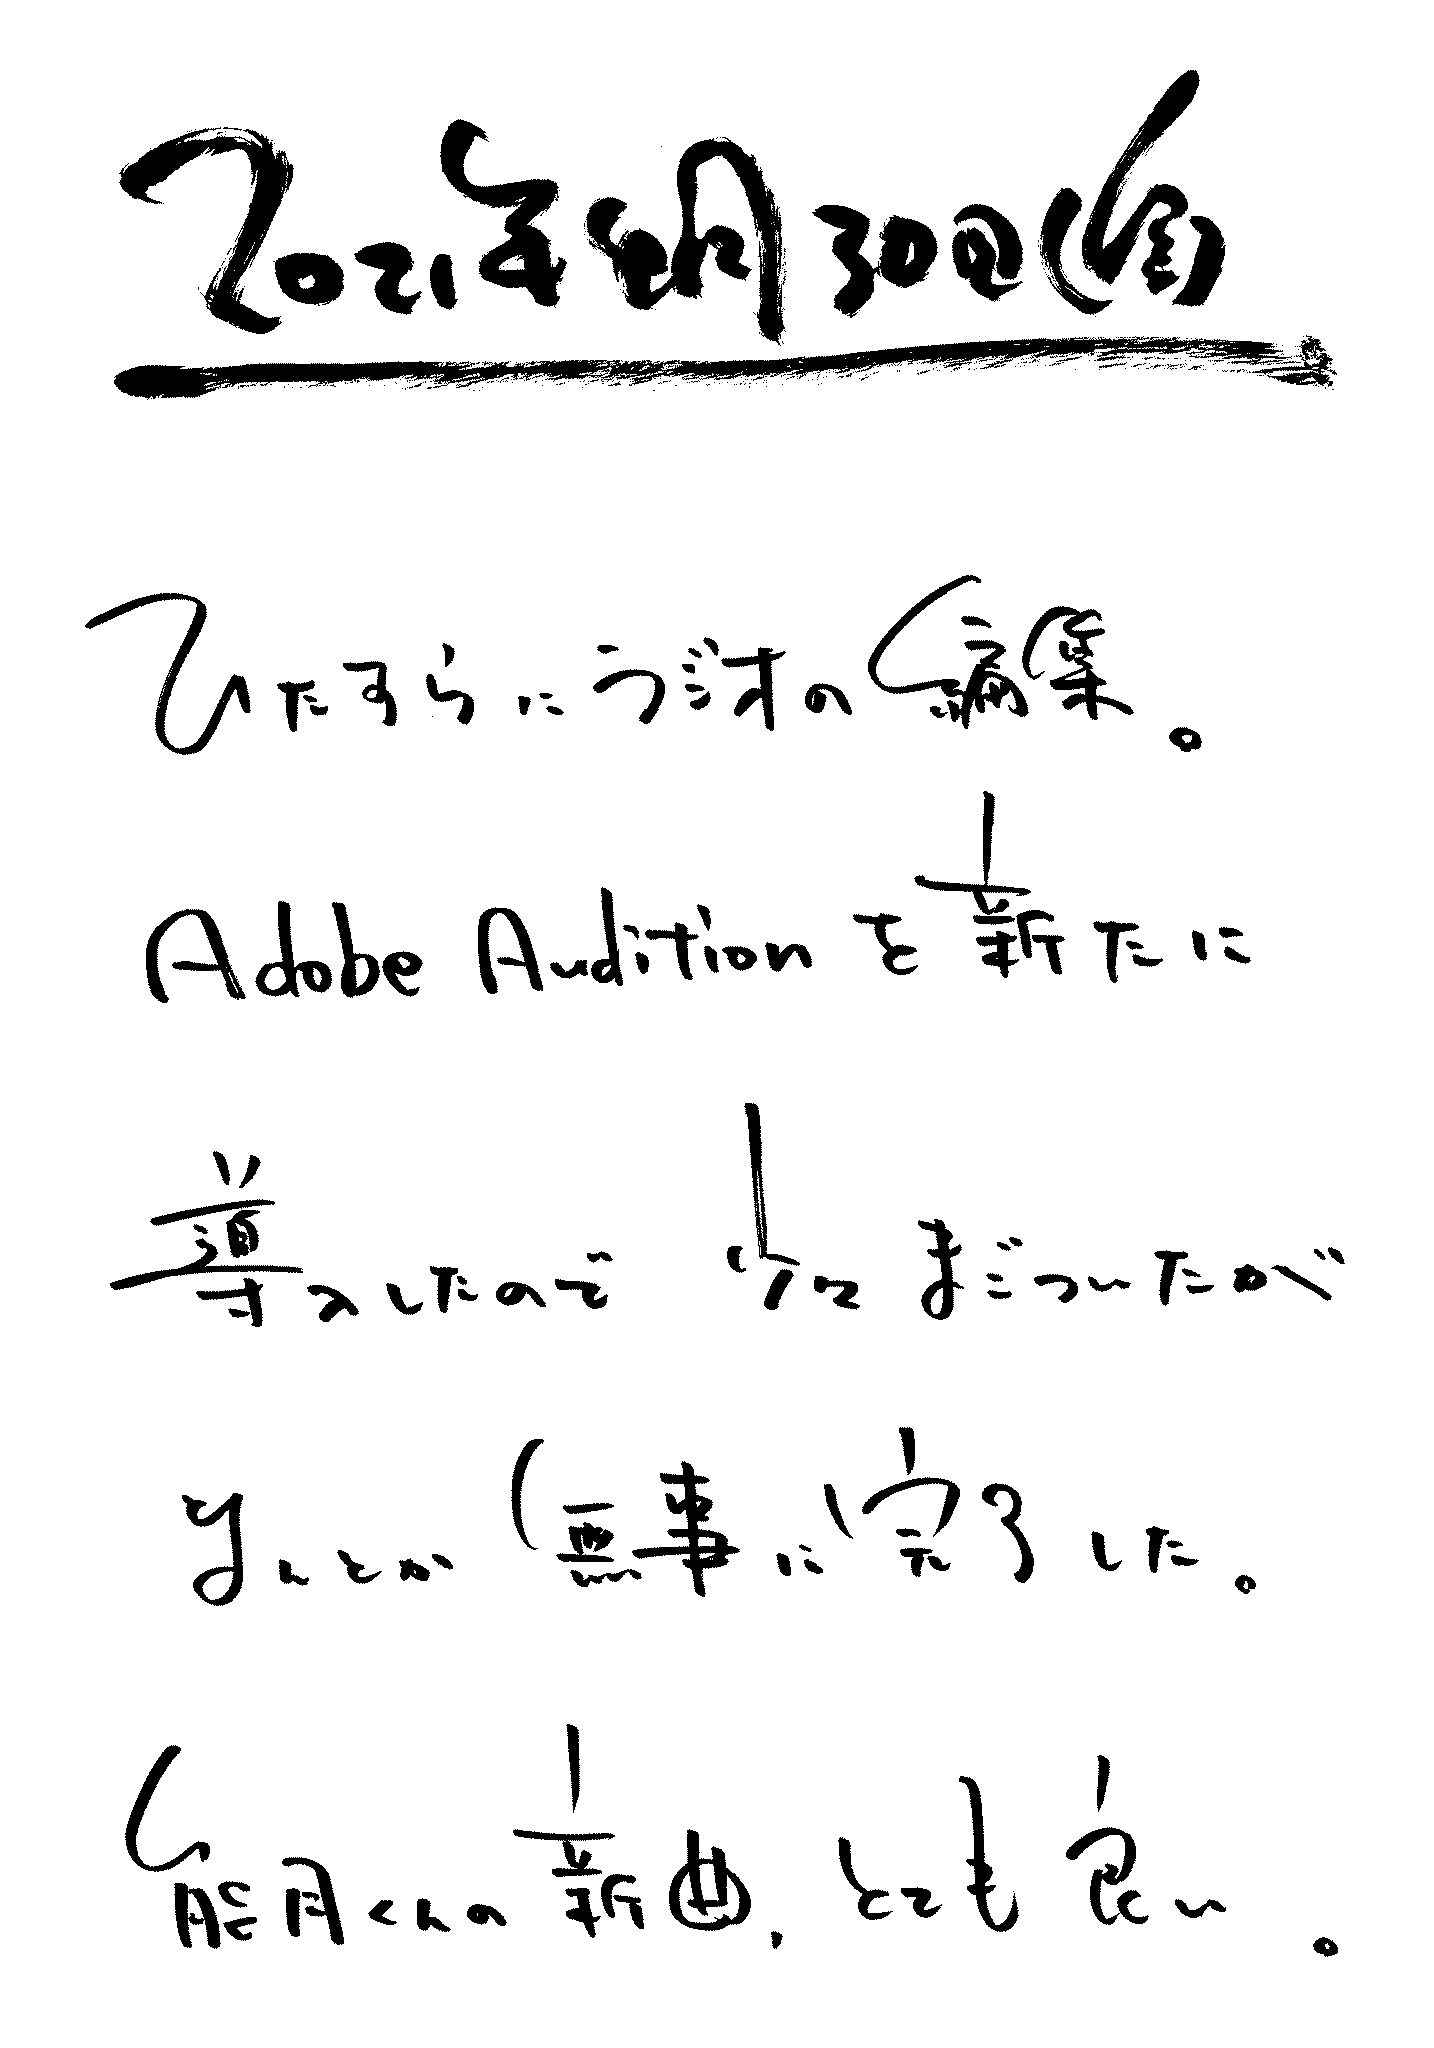 2021年 30日
ひたすらにラジオの編集。
Adobe Auditionを新たに
導入したので 少々まごついたが
なんとか 無事に完了した。
能月くんの新曲、とても良い。